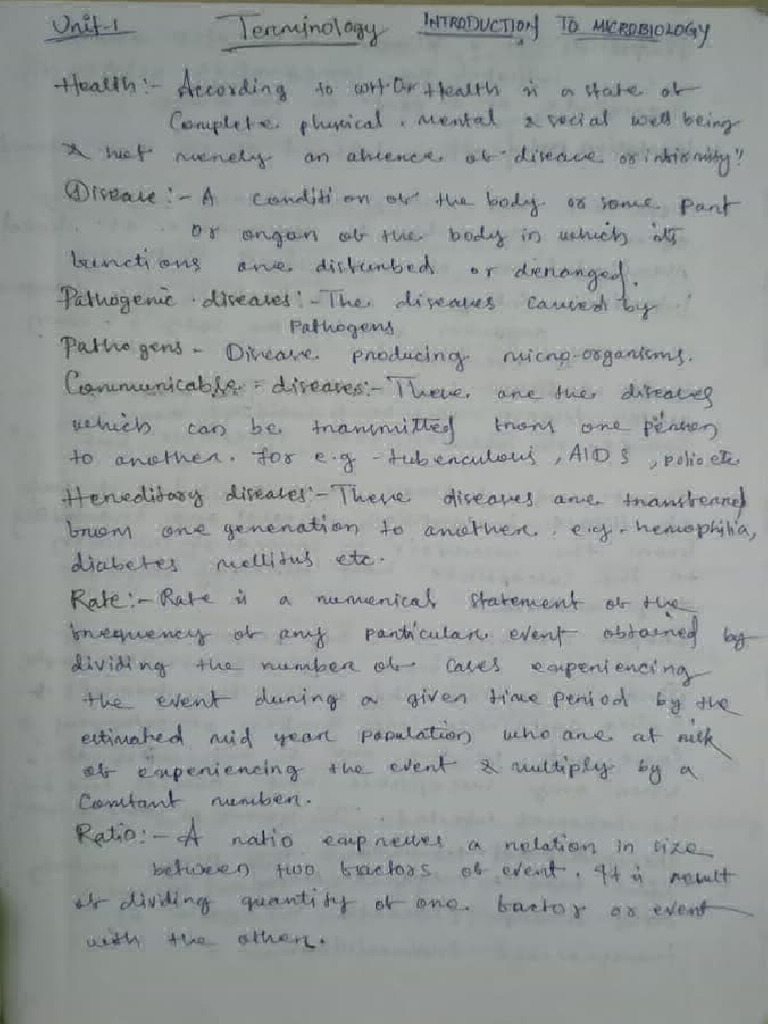 Unit-1 Terminology INTRODUCTION TO MICROBIOLOGY
Health:- According to WHO Health is a state of
Complete physical, mental & social well being
& not merely an absence of disease or infirmity"
Disease:- A condition of the body or some part
or organ of the body in which its
functions are disturbed or deranged.
Pathogenic diseases:- The diseases caused by
Pathogens
Pathogens - Disease producing micro-organisms.
Communicable = diseases:- These are the diseases
which can be transmitted from one person
to another. For e.g - tuberculous, AIDS, polio etc
Hereditary diseases:- These diseases are transferred
from one generation to another. e.g - hemophilia,
diabetes mellitus etc.
Rate:- Rate is a numerical statement of the
frequency of any particular event obtained by
dividing the number of cases experiencing
the event during a given time period by the
estimated mid year population who are at risk
of experiencing the event & multiply by a
Constant number.
Ratio:- A ratio expresses a relation in size
between two factors of event. It is result
of dividing quantity of one factor or event
with the other.